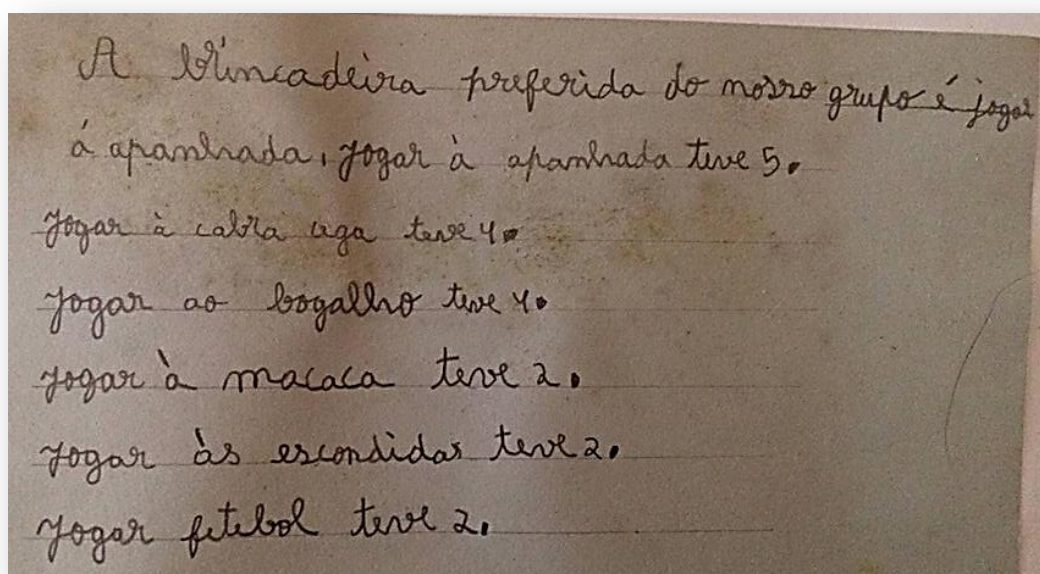 A brincadeira preferida do nosso grupo é jogar
á apanhada, jogar à apanhada teve 5.
Jogar à cabra cega teve 4.
Jogar ao bogalho teve 4.
Jogar à macaca teve 2.
Jogar às escondidas teve 2.
Jogar futebol teve 2.